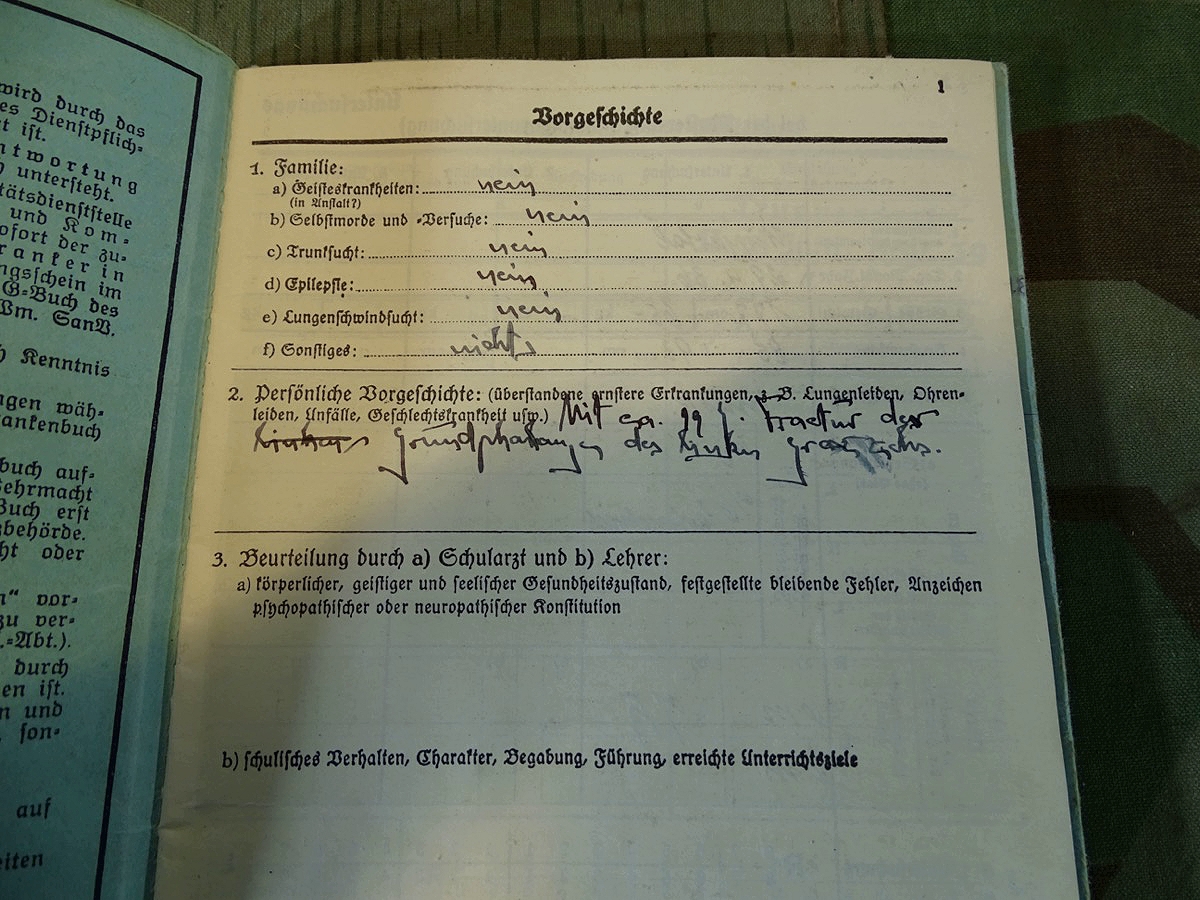 wird durch das
es Dienstpflich-
t ist.
ntwortung
untersteht.
tätsdienststelle
und Kom-
ofort der zu-
ranker in
ngsschein im
G-Buch des
Wm. SanV.
Kenntnis
ngen wäh-
ankenbuch
buch auf-
ehrmacht
Buch erst
behörde.
ht oder
n" vor-
zu ver-
.-Abt.).
durch
en ist.
n und
son-
auf
eiten
1
Vorgeschichte
1. Familie:
a) Geisteskrankheiten: nein
(in Anstalt?)
b) Selbstmorde und -Versuche: nein
c) Trunksucht: nein
d) Epilepsie: nein
e) Lungenschwindsucht: nein
f) Sonstiges: nichts
2. Persönliche Vorgeschichte: (überstandene ernstere Erkrankungen, z. B. Lungenleiden, Ohren-
leiden, Unfälle, Geschlechtskrankheit usw.) Mit ca. J. Fractur der
Grundphalangen des linken
3. Beurteilung durch a) Schularzt und b) Lehrer:
a) körperlicher, geistiger und seelischer Gesundheitszustand, festgestellte bleibende Fehler, Anzeichen
psychopathischer oder neuropathischer Konstitution
b) schulisches Verhalten, Charakter, Begabung, Führung, erreichte Unterrichtsziele